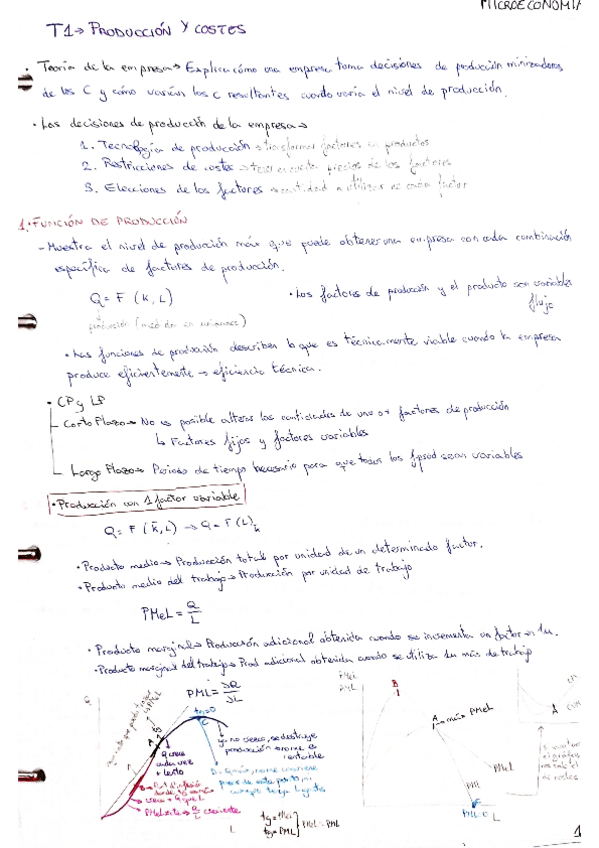 MICROECONOMIA
T1→ PRODUCCIÓN Y COSTES
· Teoría de la empresa→ Explica cómo una empresa toma decisiones de producción minimizadoras
de los C y cómo varían los C resultantes cuando varía el nivel de producción.
· Las decisiones de producción de la empresa→
1. Tecnología de producción → transformar factores en productos
2. Restricciones de costes → tener en cuenta precios de los factores
3. Elecciones de los factores → cantidad a utilizar de cada factor
1. FUNCIÓN DE PRODUCCIÓN
- Muestra el nivel de producción máx que puede obtener una empresa con cada combinación
específica de factores de producción.
Q = F (K, L)
· Los factores de producción y el producto son variables
flujo
producción (medida en unidades)
· Las funciones de producción describen lo que es técnicamente viable cuando la empresa
produce eficientemente → eficiencia técnica.
· CP y LP
Corto Plazo→ No es posible alterar las cantidades de uno o + factores de producción
↳ Factores fijos y factores variables
Largo Plazo→ Periodo de tiempo necesario para que todos los fprod sean variables
· Producción con 1 factor variable
Q = F (K̄, L) → Q = F (L)
· Producto medio→ Producción total por unidad de un determinado factor.
· Producto medio del trabajo→ Producción por unidad de trabajo
PMeL = Q/L
· Producto marginal→ Producción adicional obtenida cuando se incrementa un factor en 1u.
· Producto marginal del trabajo→ Prod adicional obtenida cuando se utiliza 1u más de trabajo
PML = ∂Q/∂L
Q
PMeL
PML
B
A → máx PMeL
A
no crece, se destruye
producción
Q crece
cada vez
+ lento
PMeL
PML
C
PML=0
L
L
1